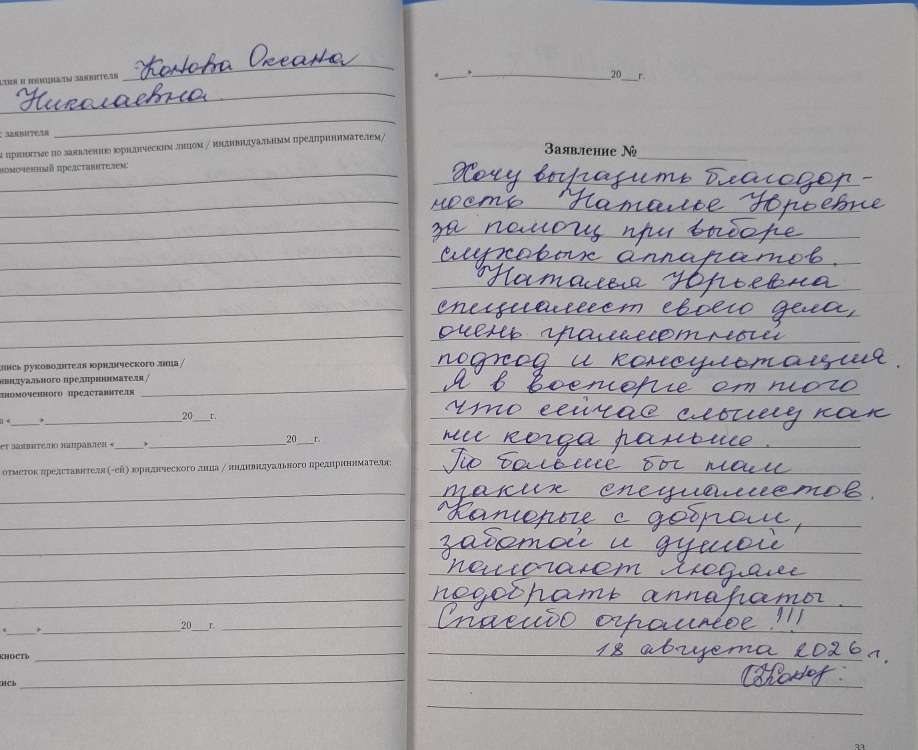 лия и инициалы заявителя Конова Оксана
Николаевна
с заявителя
ы принятые по заявлению юридическим лицом / индивидуальным предпринимателем/
номоченный представителем:
пись руководителя юридического лица/
ивидуального предпринимателя/
лномоченного представителя
а «___» ___ 20___г.
ет заявителю направлен «___» ___ 20___г.
отметок представителя (-ей) юридического лица / индивидуального предпринимателя:
«___» ___ 20___г.
жность
ись
«___» ___ 20___г.
Заявление №
Хочу выразить благодор-
ность Наталье Юрьевне
за помощ при выборе
слуховых аппаратов.
Наталья Юрьевна
специалист своего дела,
очень граммотный
подход и консультация.
Я в восторге от того
что сейчас слышу как
ни когда раньше.
По больше бы там
таких специалистов.
Каторые с добром,
заботой и душой
помогают людям
подобрать аппараты.
Спасибо огромное!!!
18 августа 2026 г.
33